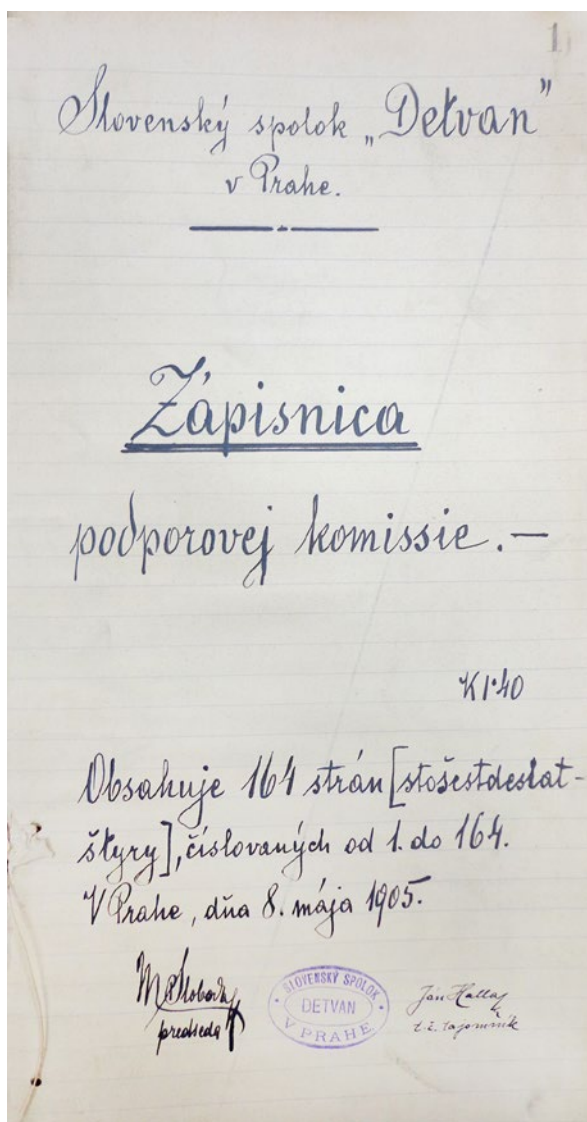 1
Slovenský spolok „Detvan"
v Prahe.
Zápisnica
podporovej komissie.—
K 1·40
Obsahuje 164 strán [stošesťdesiat-
štyry], číslovaných od 1. do 164.
V Prahe, dňa 8. mája 1905.
predseda
SLOVENSKÝ SPOLOK
DETVAN
V PRAHE
Ján
t. č. tajomník